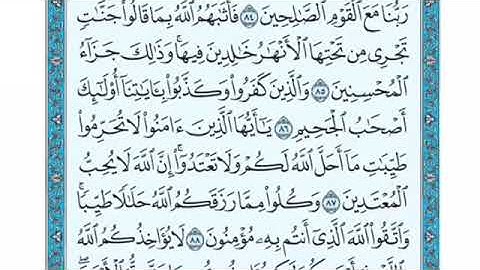 رَبُّنَا مَعَ ٱلْقَوْمِ ٱلصَّٰلِحِينَ ٨٤ فَأَثَٰبَهُمُ ٱللَّهُ بِمَا قَالُوا۟ جَنَّٰتٍ
تَجْرِى مِن تَحْتِهَا ٱلْأَنْهَٰرُ خَٰلِدِينَ فِيهَا ۚ وَذَٰلِكَ جَزَآءُ
ٱلْمُحْسِنِينَ ٨٥ وَٱلَّذِينَ كَفَرُوا۟ وَكَذَّبُوا۟ بِـَٔايَٰتِنَآ أُو۟لَٰٓئِكَ
أَصْحَٰبُ ٱلْجَحِيمِ ٨٦ يَٰٓأَيُّهَا ٱلَّذِينَ ءَامَنُوا۟ لَا تُحَرِّمُوا۟
طَيِّبَٰتِ مَآ أَحَلَّ ٱللَّهُ لَكُمْ وَلَا تَعْتَدُوٓا۟ ۚ إِنَّ ٱللَّهَ لَا يُحِبُّ
ٱلْمُعْتَدِينَ ٨٧ وَكُلُوا۟ مِمَّا رَزَقَكُمُ ٱللَّهُ حَلَٰلًا طَيِّبًا ۚ
وَٱتَّقُوا۟ ٱللَّهَ ٱلَّذِىٓ أَنتُم بِهِۦ مُؤْمِنُونَ ٨٨ لَا يُؤَاخِذُكُمُ ٱللَّهُ